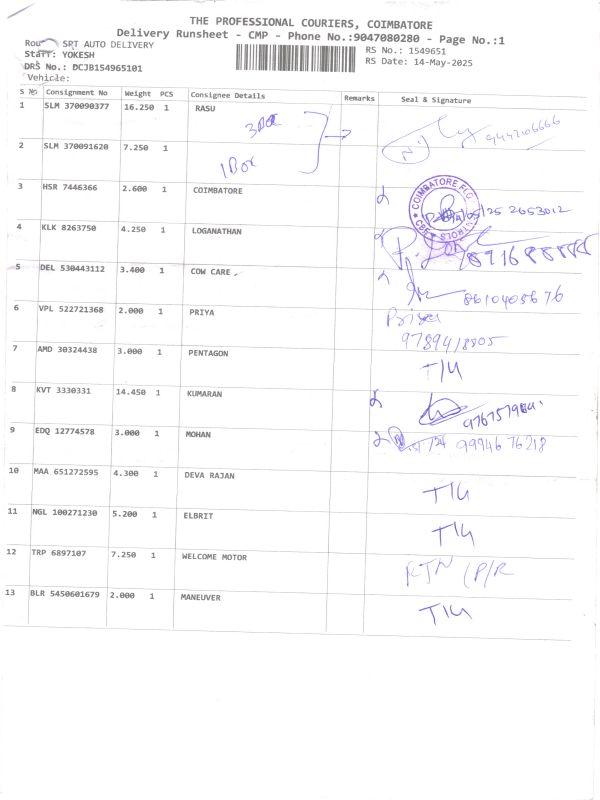 THE PROFESSIONAL COURIERS, COIMBATORE
Delivery Runsheet - CMP - Phone No.:9047080280 - Page No.:1
SPT AUTO DELIVERY
Staff: YOKESH
DRS No.: DCJB154965101
Vehicle:
RS No.: 1549651
RS Date: 14-May-2025
S No Consignment No Weight PCS Consignee Details Remarks Seal & Signature
1 SLM 370090377 16.250 1 RASU
3 Box
9442106666
2 SLM 370091620 7.250 1
1 Box
3 HSR 7446366 2.600 1 COIMBATORE
COIMBATORE
CBE
/05/25 2653012
4 KLK 8263750 4.250 1 LOGANATHAN
5 DEL 530443112 3.400 1 COW CARE
8610405676
6 VPL 522721368 2.000 1 PRIYA
Priya
9789418805
7 AMD 30324438 3.000 1 PENTAGON
T/U
8 KVT 3330331 14.450 1 KUMARAN
9 EDQ 12774578 3.000 1 MOHAN
9994676218
10 MAA 651272595 4.300 1 DEVA RAJAN
T/U
11 NGL 100271230 5.200 1 ELBRIT
T/U
12 TRP 6897107 7.250 1 WELCOME MOTOR
RTN (P/R
13 BLR 5450601679 2.000 1 MANEUVER
T/U